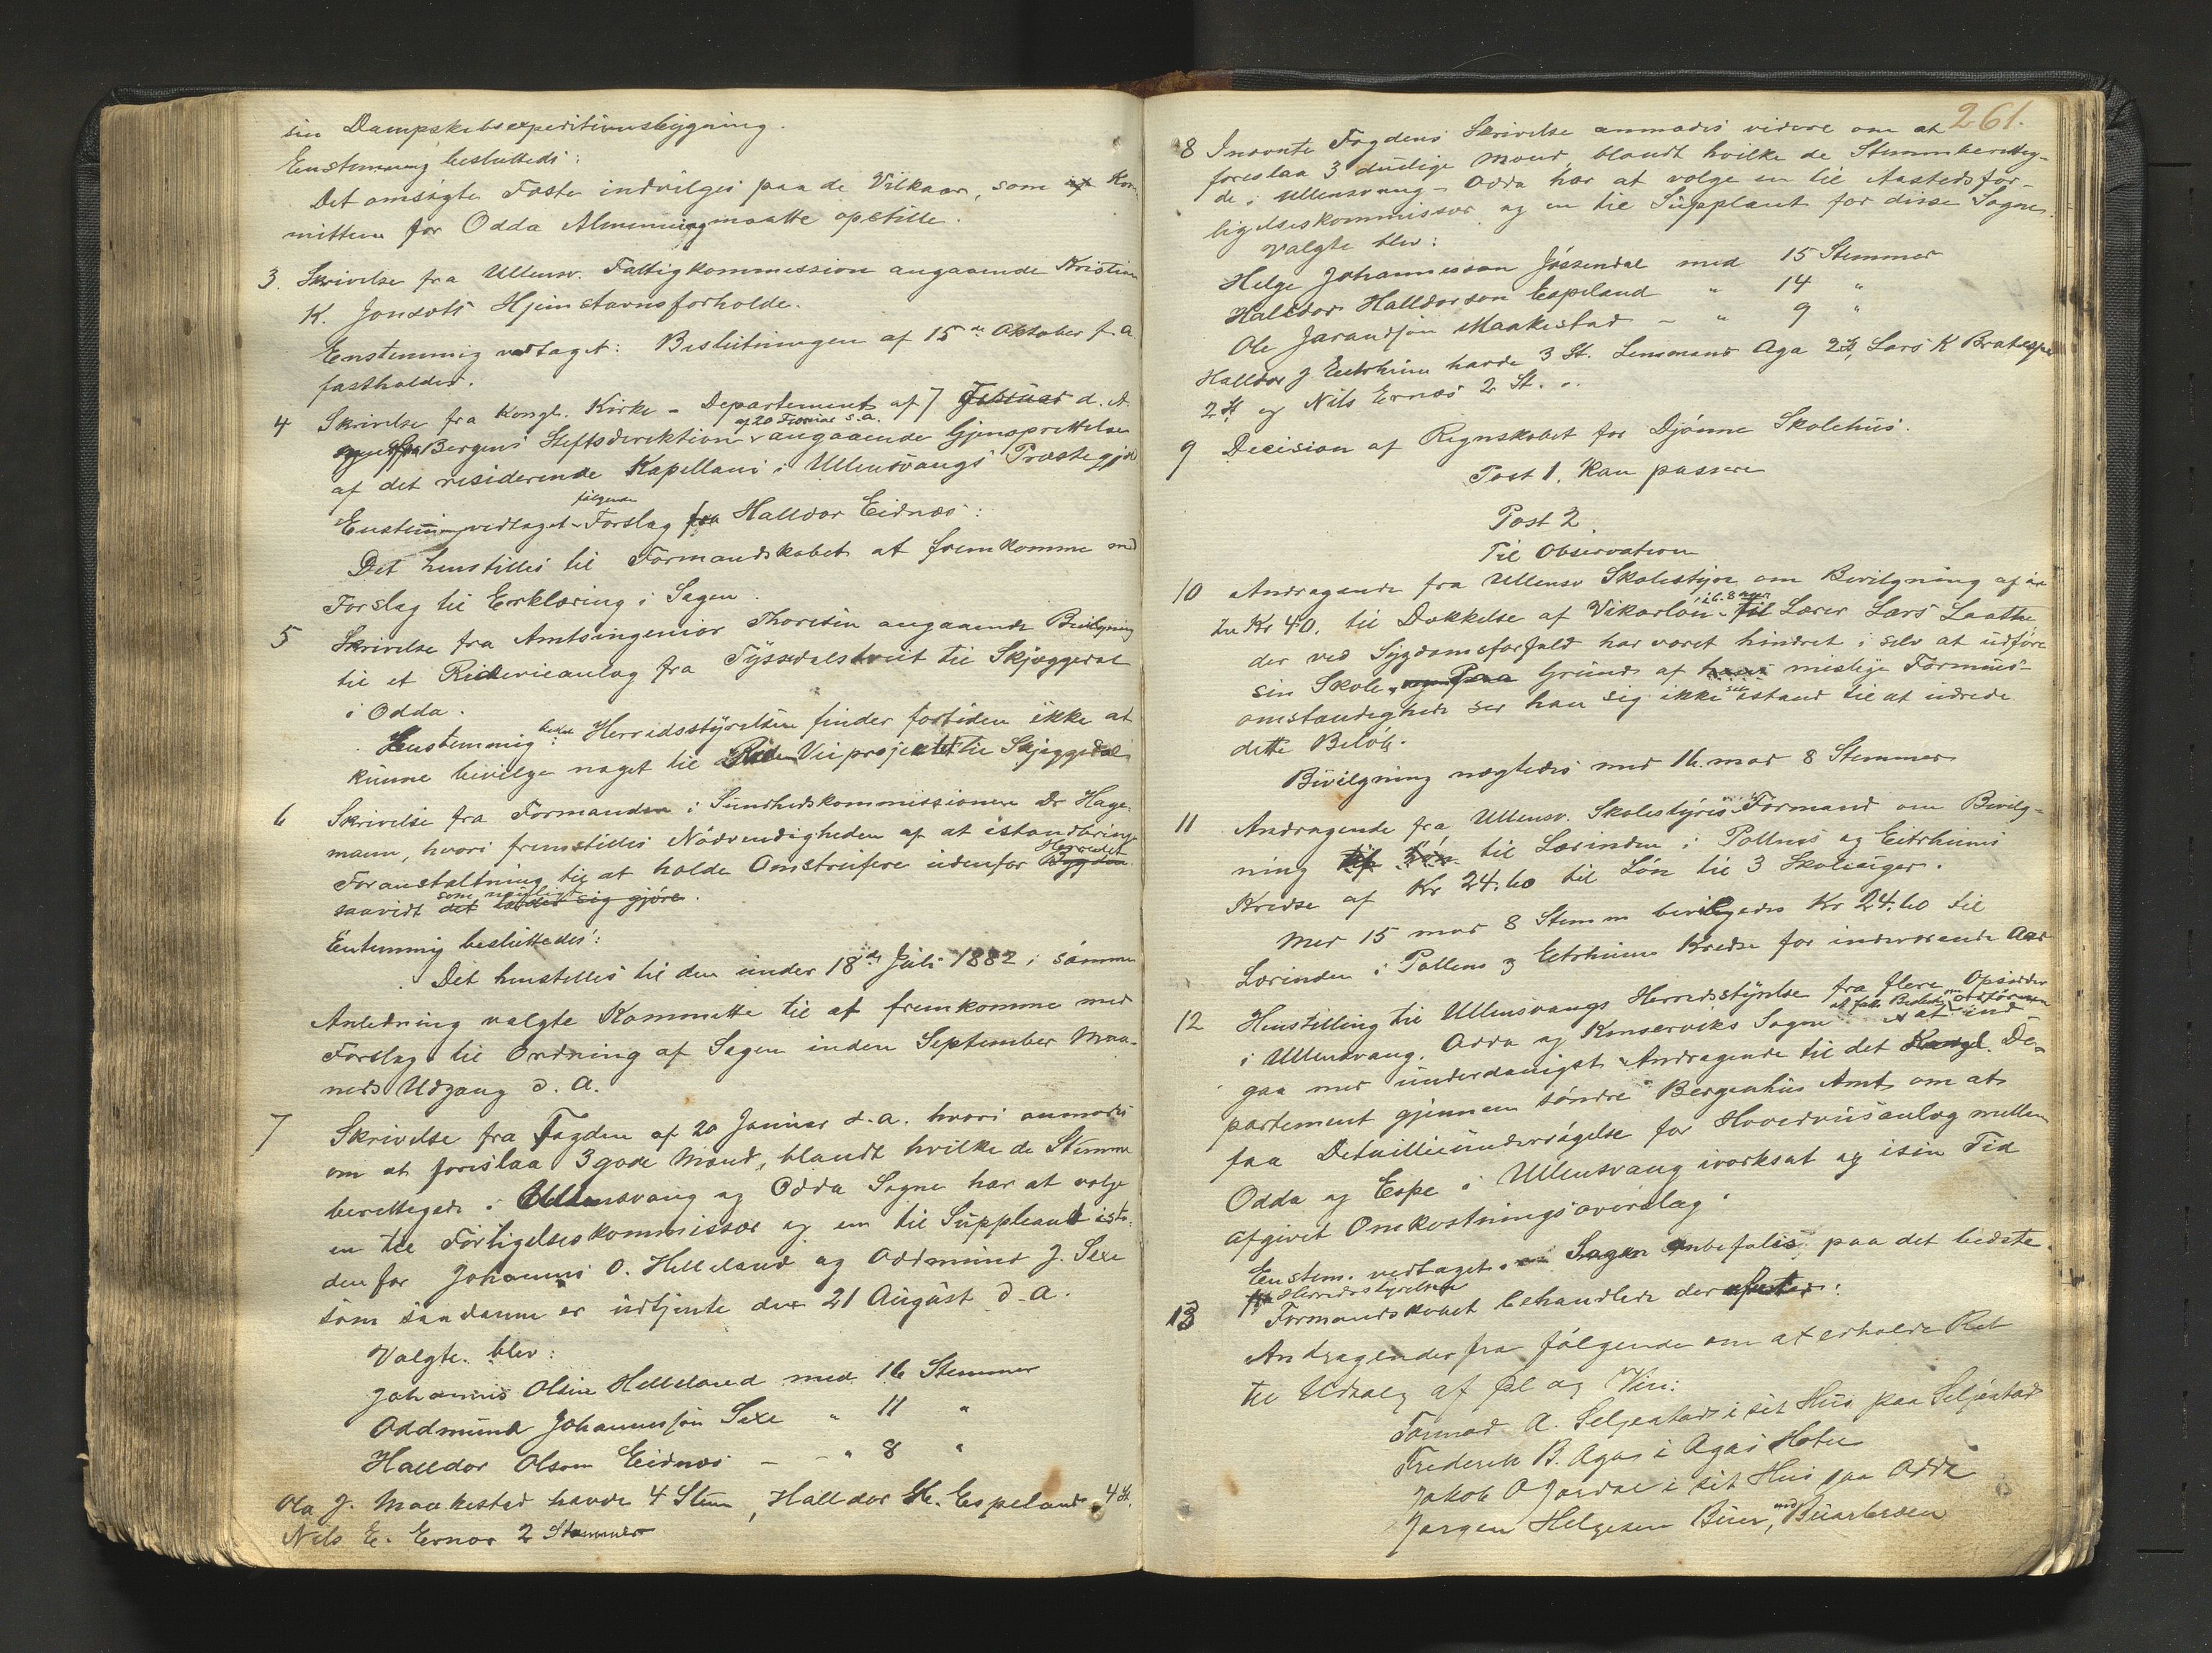 sin Dampskibsexpeditionsbygning.
Enstemmig besluttedes:
Det omsøgte Fæste indvilges paa de Vilkaar, som Kom-
mitteen for Odda Almenning maatte opstille.
3. Skrivelse fra Ullensv. Fattigkommission angaaende Kristian
K. Jonsets Hjemstavnsforholde.
Enstemmig vedtaget: Beslutningen af 15de Oktober f. A.
fastholdes.
4 Skrivelse fra Kongl. Kirke-Departement af 7 Februar d. A.
af 20 Februar s.a.
Bergens Stiftsdirektion angaaende Gjenoprettelse
af det residerende Kapellani i Ullensvangs Præstegjeld
følgende
Enstemmig vedtaget Forslag fra Halldor Eidnæs:
Det henstilles til Formandskabet at fremkomme med
Forslag til Erklæring i Sagen.
5 Skrivelse fra Amtsingeniør Thoresen angaaende Bevilgning
til et Rideveianlæg fra Tyssedalstveit til Skjæggedal
i Odda.
Enstemmig: Herredsstyrelsen finder fortiden ikke at
kunne bevilge noget til Veiprojektet til Skjæggedal
6 Skrivelse fra Formanden i Sundhedskommissionen Dr Hage-
mann, hvori fremstilles Nødvendigheden af at istandbringe
Foranstaltning til at holde Omstreifere udenfor Bygden
Herredet
saavidt det lader sig gjøre.
som muligt
Enstemmig besluttedes:
Det henstilles til den under 18de Juli 1882 i samme
Anledning valgte Kommitte til at fremkomme med
Forslag til Ordning af Sagen inden September Maa-
neds Udgang d. A.
7 Skrivelse fra Fogden af 20 Januar d. a. hvori anmodes
om at foreslaa 3 gode Mænd, blandt hvilke de Stemme-
berettigede i Ullensvang og Odda Sogne har at vælge
en til Forligelseskommissær og en til Suppleant iste-
den for Johannes O. Helleland og Oddmund J. Sexe
som saadanne er udtjente den 21 August d. A.
Valgte blev:
Johannes Olsen Helleland med 16 Stemmer
Oddmund Johannesson Sexe " 11 "
Halldor Olson Eidnæs - - " 8 "
Ola J. Maakestad havde 4 Stem, Halldor H. Espeland 4 St.
Nils E. Ernæs 2 Stemmer
261.
8 Inævnte Fogdens Skrivelse anmodes videre om at
foreslaa 3 duelige Mænd, blandt hvilke de Stemmeberettig-
de i Ullensvang - Odda har at vælge en til Aastedsfor-
ligelseskommissær og en til Suppleant for disse Sogne.
Valgte blev:
Helge Johannesson Jøssendal med 15 Stemmer
Halldor Halldorson Espeland " 14 "
Ole Jarandson Maakestad - " 9 "
Halldor J Eitrheim havde 3 St. Lensmand Aga 2 St, Lars K Bratespe
2 St og Nils Ernæs 2 St.
9 Decision af Regnskabet for Djønne Skolehus.
Post 1. Kan passere
Post 2.
Til Observation
10 Andragende fra Ullensv Skolestyre om Bevilgning af in
til Kr 40. til Dækkelse af Vikarløn til Lærer Lars Laathe
der ved Sygdomsforfald har været hindret i selv at udføre
sin Skole, og Paa Grund af hans mislige Formues-
omstændigheder ser han sig ikke istand til at udrede
dette Beløb.
Bevilgning nægtedes med 16 mod 8 Stemmer
11 Andragende fra Ullensv. Skolestyres Formand om Bevilg-
ning til Løn til Lærinden i Pollens og Eitrheims
Kredse af Kr 24.60 til Løn til 3 Skoleuger.
Med 15 mod 8 Stemm bevilgedes Kr 24.60 til
Lærinden i Pollens & Eitrheims Kredse for indeværende Aar
12 Henstilling til Ullensvangs Herredsstyrelse fra flere Opsiddere
i Ullensvang, Odda og Kinserviks Sogne at ind
gaa med underdanigst Andragende til det Kongl. De-
partement gjennem søndre Bergenhus Amt om at
faa Detaillieundersøgelse for Hovedveisanlæg mellem
Odda og Espe i Ullensvang iværksat og isin Tid
afgivet Omkostningsoverslag."
Enstem. vedtaget: Sagen anbefales paa det bedste.
Herredsstyrelsen
13 Formandskabet behandlede derefter:
Andragender fra følgende om at erholde Ret
til Udsalg af Øl og Vin:
Tormod A. Seljestad i sit Hus paa Seljestad
Frederik B. Aga i Agas Hotel
Jakob O Jordal i sit Hus paa Odda
Jørgen Helgesen Buer, ved Buarbræen